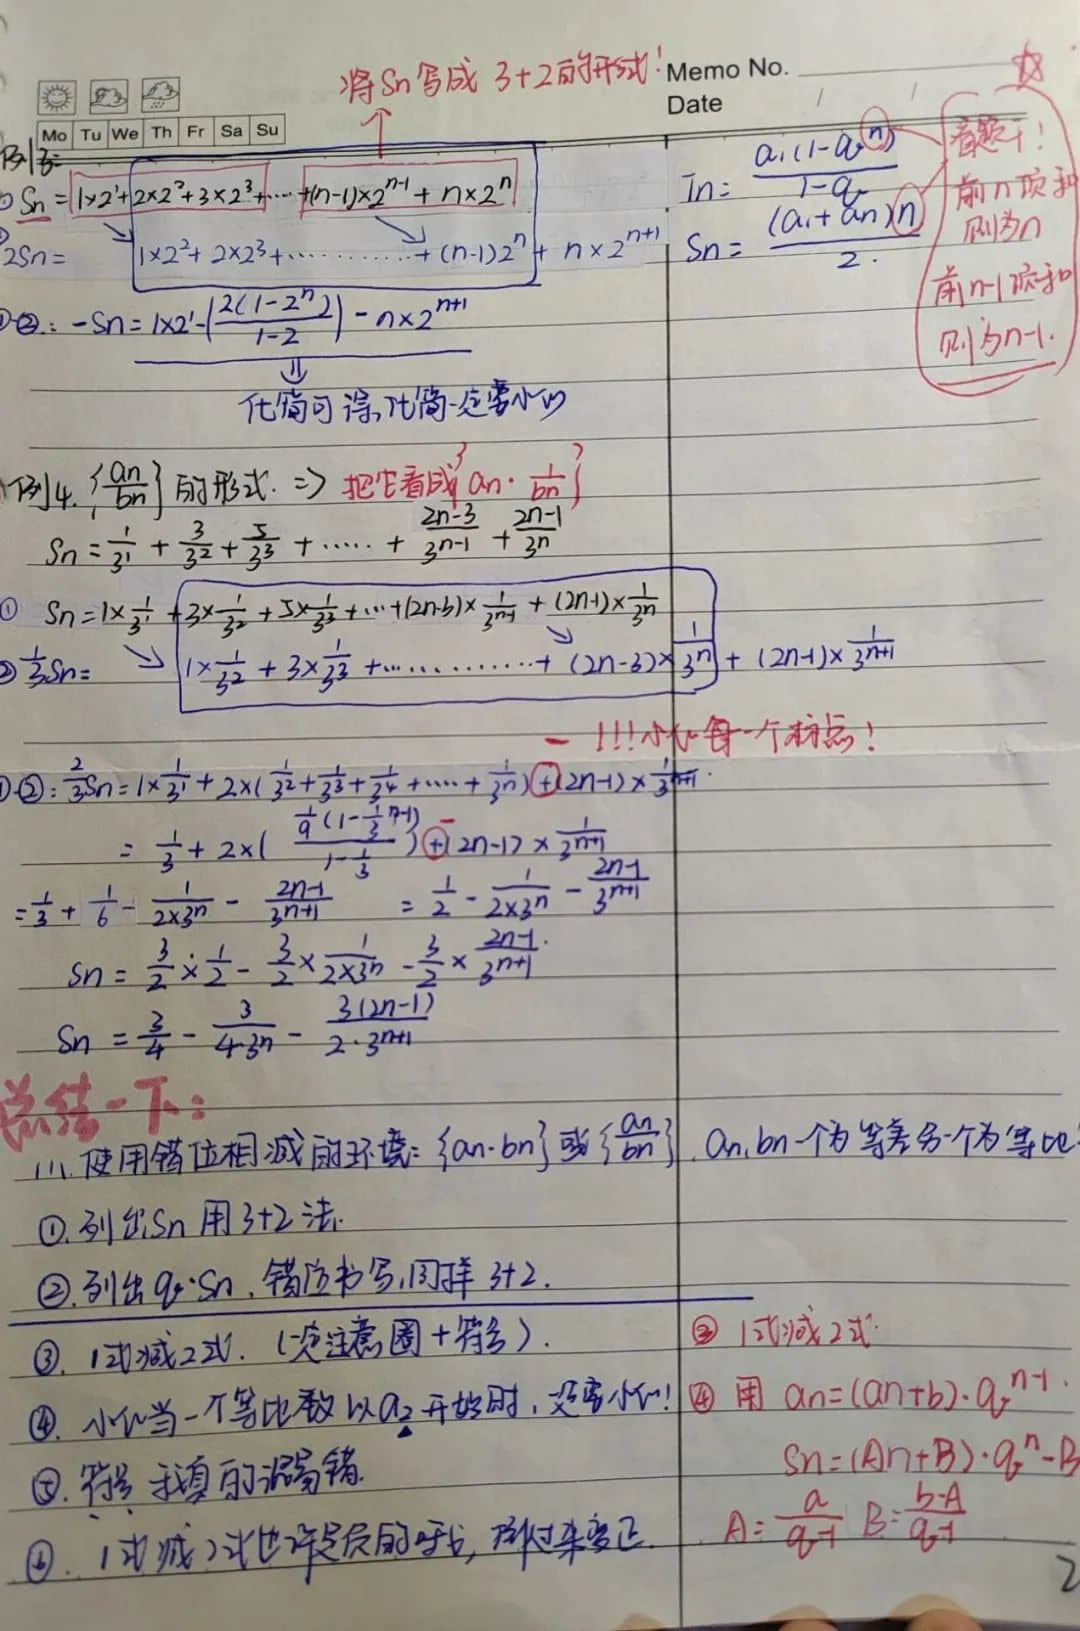 将Sn写成 3+2的形式!
Memo No.
Date
Mo Tu We Th Fr Sa Su
例3:
① Sn = 1×2¹+2×2²+3×2³+……+(n-1)×2^(n-1) + n×2^n
② 2Sn = 1×2²+2×2³+…………+(n-1)2^n + n×2^(n+1)
①-②: -Sn = 1×2¹-(2(1-2^n)/(1-2)) - n×2^(n+1)
化简可得,化简一定要小心
Tn = a₁(1-q^n)/(1-q)
Sn = (a₁+an)n/2.
看题干!
前n项和
则为n
前n-1项和
则为n-1.
例4. {an/bn} 的形式. => 把它看成{an·1/bn}
Sn = 1/3¹ + 3/3² + 5/3³ + …… + (2n-3)/3^(n-1) + (2n-1)/3^n
① Sn = 1×1/3¹ + 3×1/3² + 5×1/3³ + … + (2n-3)×1/3^(n-1) + (2n-1)×1/3^n
② 1/3Sn = 1×1/3² + 3×1/3³ + ………… + (2n-3)×1/3^n + (2n-1)×1/3^(n+1)
- !!!小心每一个标点!
①-②: 2/3Sn = 1×1/3¹ + 2×(1/3²+1/3³+1/3⁴+……+1/3^n)+(2n-1)×1/3^(n+1).
= 1/3 + 2×( 1/9(1-1/3^(n-1)) / (1-1/3) ) + - (2n-1)×1/3^(n+1)
= 1/3 + 1/6 - 1/(2×3^n) - (2n-1)/3^(n+1) = 1/2 - 1/(2×3^n) - (2n-1)/3^(n+1)
Sn = 3/2×1/2 - 3/2×1/(2×3^n) - 3/2×(2n-1)/3^(n+1).
Sn = 3/4 - 3/(4·3^n) - 3(2n-1)/(2·3^(n+1))
总结一下:
(1). 使用错位相减的环境: {an·bn}或{an/bn}. an,bn一个为等差另一个为等比
①.列出Sn用3+2法.
②.列出q·Sn,错位书写,同样3+2.
③. 1式减2式. (一定注意圈+符号).
④. 小心当一个等比数以a₂开始时,一定要小心!
⑤. 符号 我真的混易错.
⑥. 1式减2式也许是负的,除过来变正.
③ 1式减2式.
④ 用 an=(an+b)·q^(n-1).
Sn=(An+B)·q^n-B
A=a/(q-1) B=(b-A)/(q-1)
2